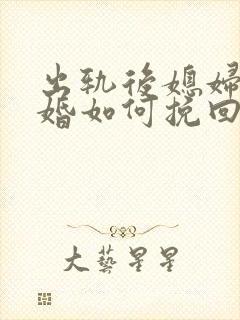 出轨后媳妇
婚如何挽回
大艺星星